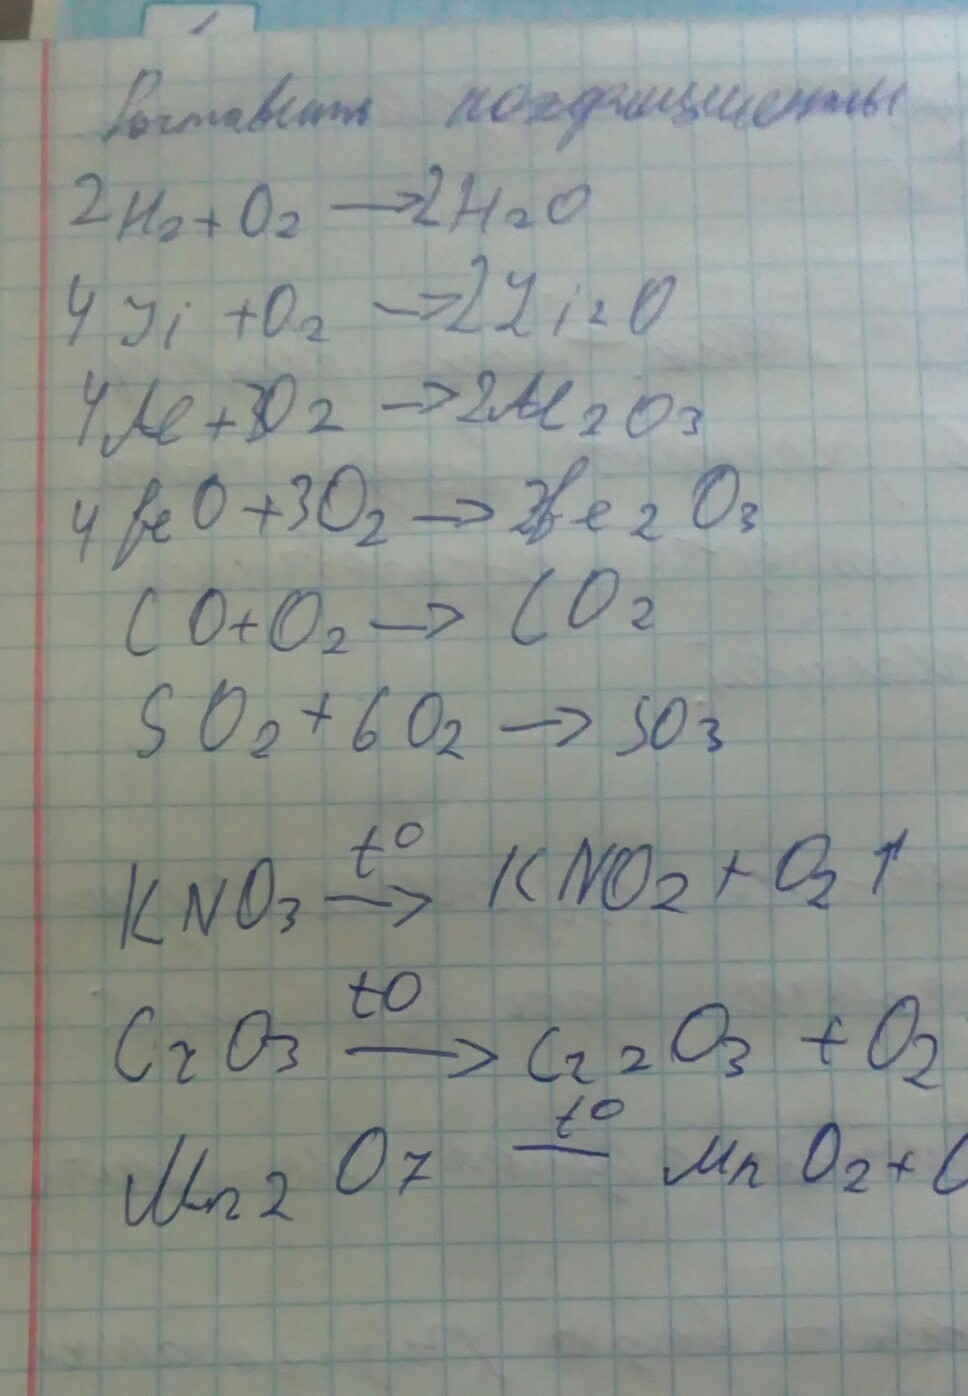 Расставить коэффициенты
2H₂ + O₂ → 2H₂O
4 Li + O₂ → 2Li₂O
4Al + 3O₂ → 2Al₂O₃
4 FeO + 3O₂ → 2Fe₂O₃
CO + O₂ → CO₂
SO₂ + 6O₂ → SO₃
t⁰
KNO₃ → KNO₂ + O₂↑
t⁰
CrO₃ → Cr₂O₃ + O₂
t⁰
Mn₂O₇ — MnO₂ + O